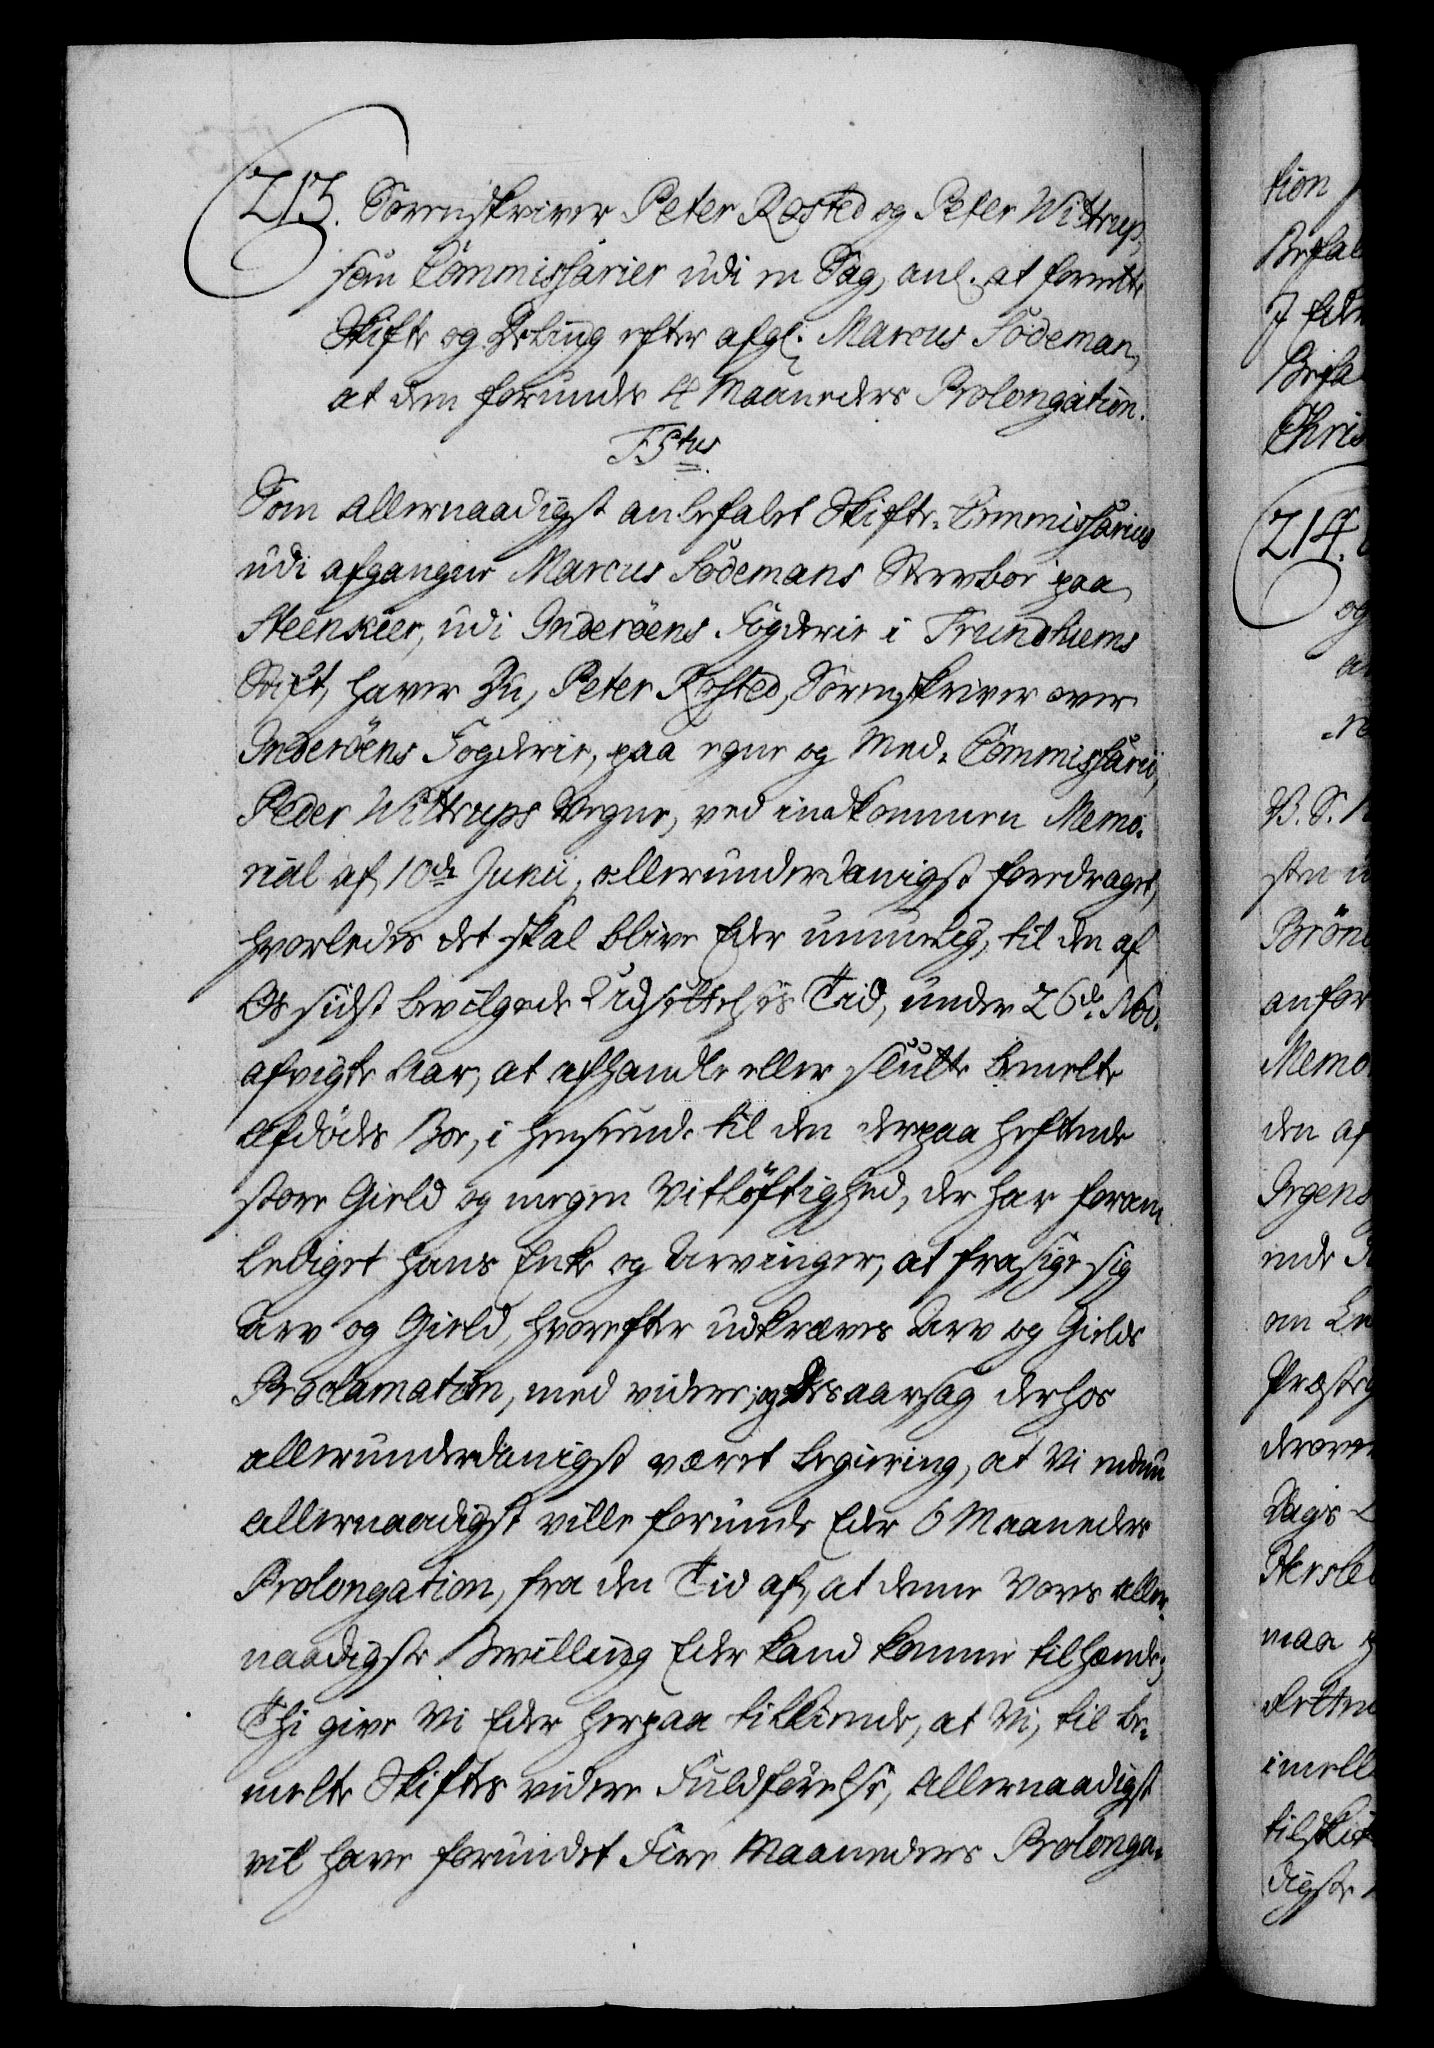 213. Sorenskriver Peter Rosted og Peter Wittrup,
som Commissarier udi en Sag, anl. at forrette
Skifte og Deeling efter afg: Marcus Sødeman,
at dem forundes 4 Maaneders Prolongation.
F5tus
Som Allernaadigst anbefalet Skifte-Commissarius
udi afgangne Marcus Sødemans Sterboe paa
Steenkier, udi Inderöens Fogderie i Trundhiems
Stift, haver Du, Peter Rosted, Sorenskriver over
Inderöens Fogderie, paa egne og Med-Commissarii,
Peder Wittrups Vegne, ved indkommen Memo-
rial af 10de Junii, allerunderdanigst foredraget,
hvorledes det skal blive Eder umuelig, til den af
Os sidst bevilgede Udsettelses Tid, under 26de Nov.
afvigte Aar, at afhandle eller slutte bemelte
Afdödes Boe, i henseende til den derpaa heftende
store Gield og megen Vitlöftighed, der har foran-
lediget hans Enke og Arvinger, at frasige sig
Arv og Gield, hvorefter udkræves Arv og Gields
Proclamation, med videre; og Desaarsag derhos
allerunderdanigst været begierende, at Vi endnu
allernaadigst ville forunde Eder 6 Maaneders
Prolongation, fra den Tid af, at denne Vores Aller-
naadigste Bevilling Eder kand komme tilhænde;
Thi give Vi Eder herpaa tilkiende, at Vi, til be-
melte Skiftes videre Fuldförelse, Allernaadigst
vil have forundet Fire Maaneders Prolonga-
tion
214.
og
Memo
den af
om
maa